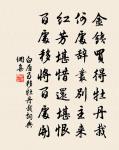 金錢買得牡丹栽
何處辭叢別主來
紅芳堪惜還堪恨
百處移將百處開
白居易移牡丹栽詞典
網集